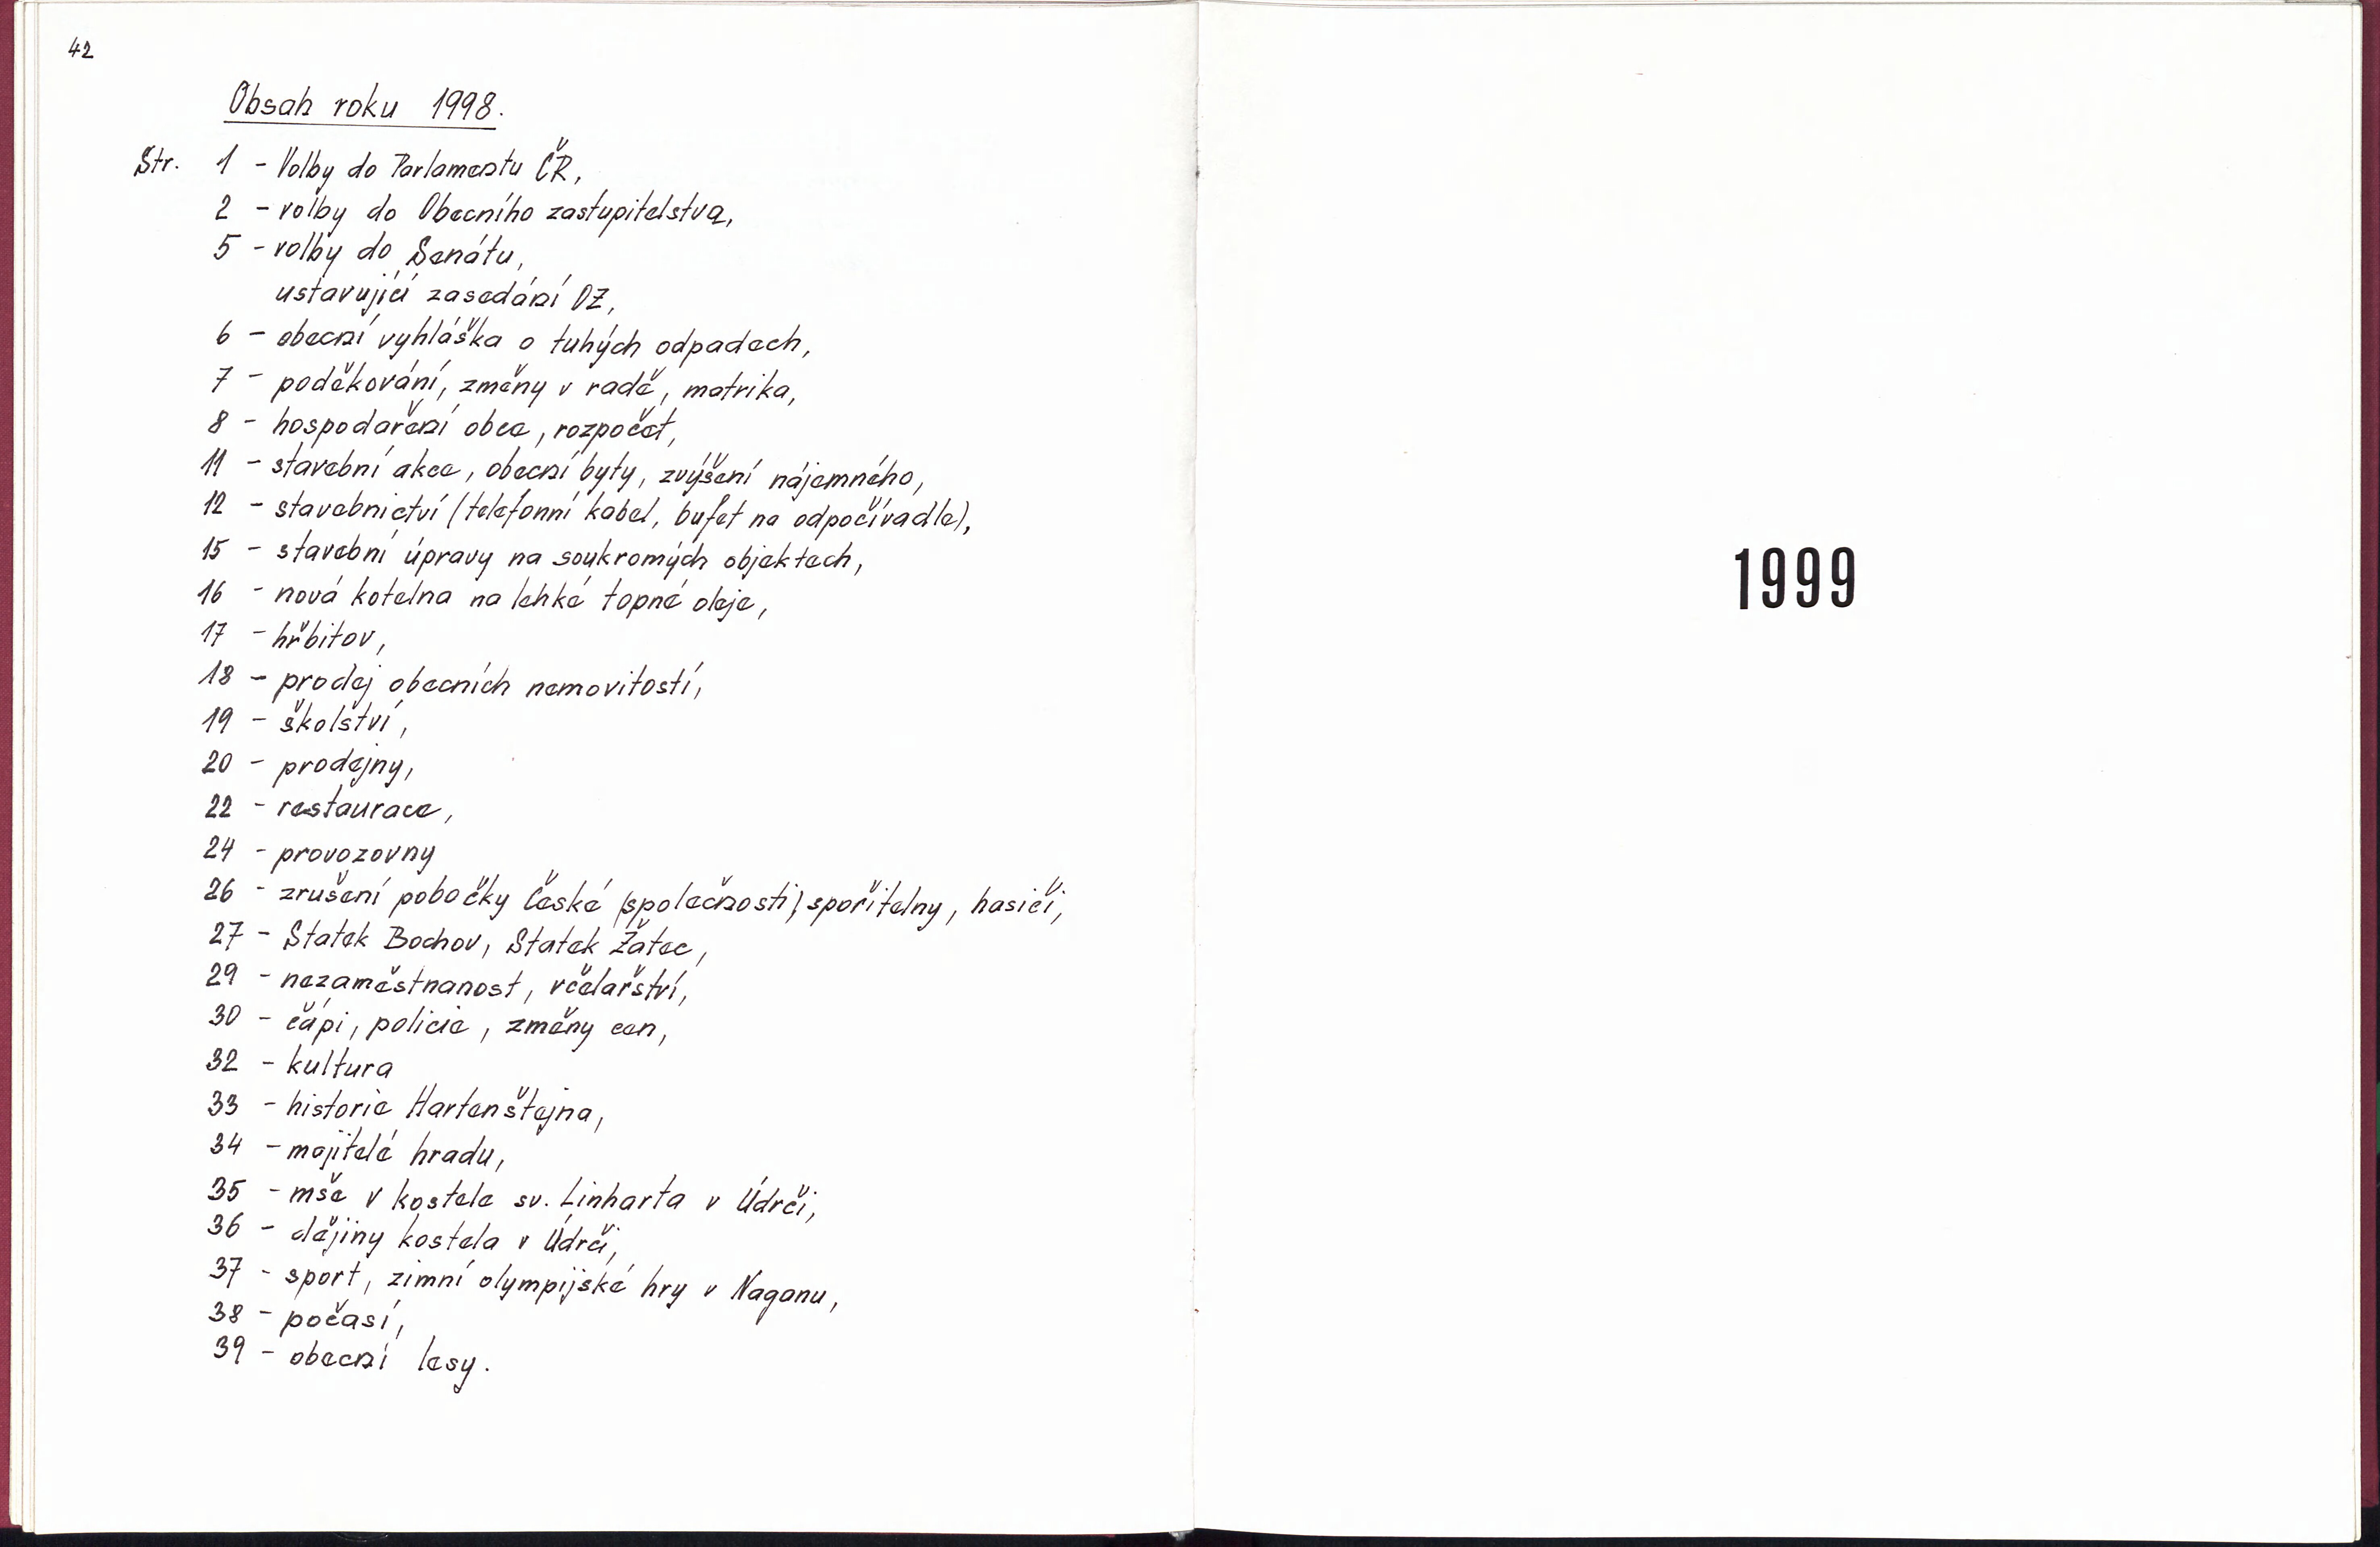 42
Obsah roku 1998.
Str. 1 - Volby do Parlamentu ČR,
2 - volby do Obecního zastupitelstva,
5 - volby do Senátu,
ustavující zasedání OZ,
6 - obecní vyhláška o tuhých odpadech,
7 - poděkování, změny v radě, matrika,
8 - hospodaření obce, rozpočet,
11 - stavební akce, obecní byty, zvýšení nájemného,
12 - stavebnictví (telefonní kabel, bufet na odpočívadle),
15 - stavební úpravy na soukromých objektech,
16 - nová kotelna na lehké topné oleje,
17 - hřbitov,
18 - prodej obecních nemovitostí,
19 - školství,
20 - prodejny,
22 - restaurace,
24 - provozovny
26 - zrušení pobočky České (společnosti) spořitelny, hasiči,
27 - Statek Bochov, Statek Žatec,
29 - nezaměstnanost, včelařství,
30 - čápi, policie, změny cen,
32 - kultura
33 - historie Hartenštejna,
34 - majitelé hradu,
35 - mše v kostele sv. Linharta v Údrči,
36 - dějiny kostela v Údrči,
37 - sport, zimní olympijské hry v Naganu,
38 - počasí,
39 - obecní lesy.
1999